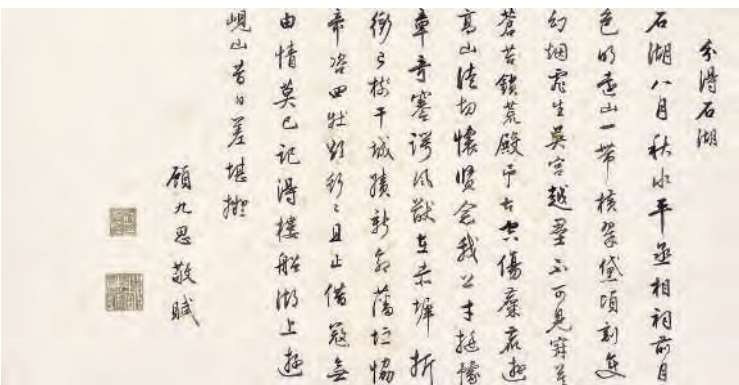 分得石湖
石湖八月秋水平丞相祠前月
色明遠山一帶橫翠黛頃刻變
幻烟霏生吳宮越壘不可見寂莫
蒼苔鎖荒殿弔古空傷麋鹿遊
高山徒切懷賢念我公才挺豫
章奇謇諤風猷在赤墀折
衝樹干城績新命藩垣協
帝咨四牡行々且止借寇無
由情莫已記得樓船湖上遊
峴山昔日差堪擬
顧九思敬賦